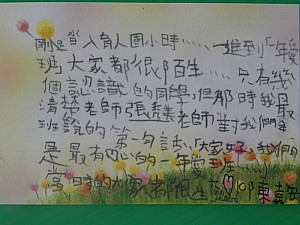 剛踏入育人國小時……一進到一年愛
班大家都很陌生……只有幾
個認識的同學,但那時我最
清楚老師張老師對我們全
班說的第一句話:「大家好!我們
是最有心的一年愛班」
當時的大家都很